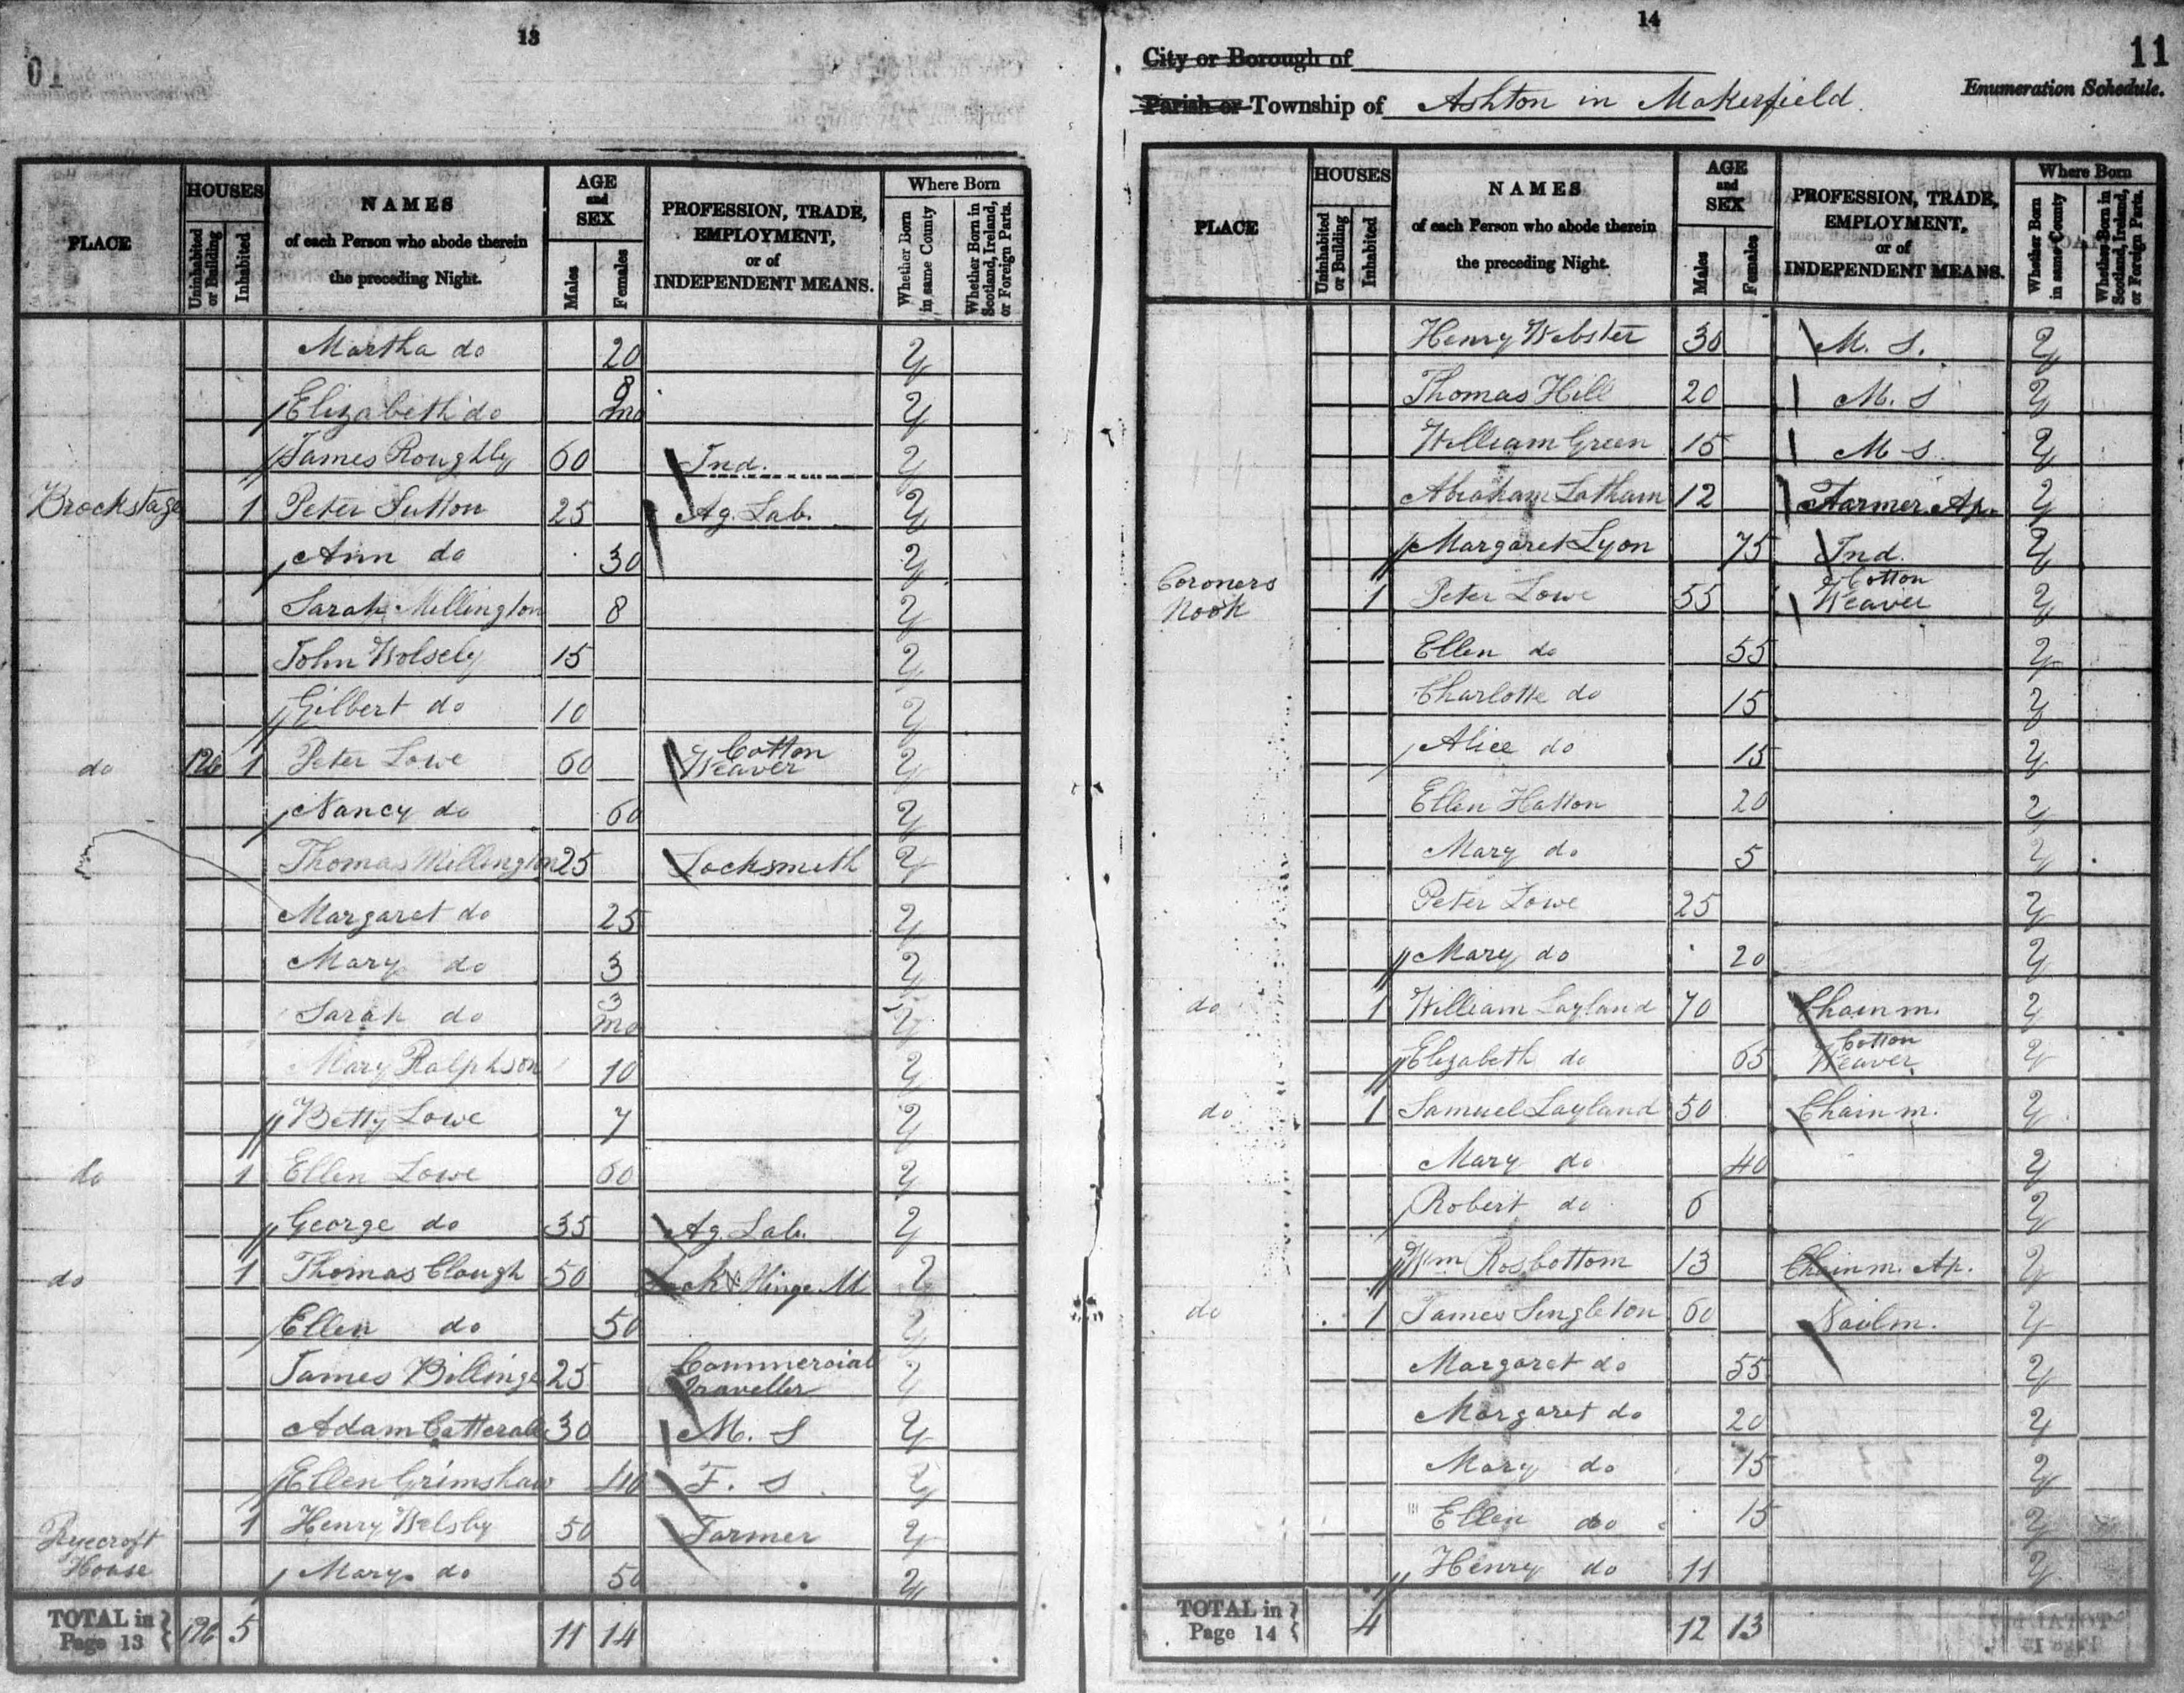 13
PLACE
HOUSES
Uninhabited or Building
Inhabited
NAMES
of each Person who abode therein
the preceding Night.
AGE
and
SEX
Males
Females
PROFESSION, TRADE,
EMPLOYMENT,
or of
INDEPENDENT MEANS.
Where Born
Whether Born in same County
Whether Born in Scotland, Ireland, or Foreign Parts.
Martha do 20 Y
Elizabeth do 8 mo Y
James Roughly 60 Ind. Y
Brockstage 1 Peter Sutton 25 Ag. Lab. Y
Ann do 30 Y
Sarah Millington 8 Y
John Wolsely 15 Y
Gilbert do 10 Y
do 1 Peter Lowe 60 Cotton Weaver Y
Nancy do 60 Y
Thomas Millington 25 Locksmith Y
Margaret do 25 Y
Mary do 3 Y
Sarah do 3 mo Y
Mary Ralphson 10 Y
Betty Lowe 7 Y
do 1 Ellen Lowe 60 Y
George do 35 Ag. Lab. Y
do 1 Thomas Clough 50 Lock & Hinge M Y
Ellen do 50 Y
James Billinge 25 Commercial Traveller Y
Adam Catterall 30 M. S Y
Ellen Grimshaw 40 F. S Y
Ryecroft House 1 Henry Welsby 50 Farmer Y
Mary do 50 Y
TOTAL in Page 13 5 11 14
14
11
City or Borough of
Enumeration Schedule.
Parish or Township of Ashton in Makerfield
PLACE
HOUSES
Uninhabited or Building
Inhabited
NAMES
of each Person who abode therein
the preceding Night.
AGE
and
SEX
Males
Females
PROFESSION, TRADE,
EMPLOYMENT,
or of
INDEPENDENT MEANS.
Where Born
Whether Born in same County
Whether Born in Scotland, Ireland, or Foreign Parts.
Henry Webster 30 M. S. Y
Thomas Hill 20 M. S Y
William Green 15 M S Y
Abraham Latham 12 Farmer Ap. Y
Margaret Lyon 75 Ind. Y
Coroners Nook 1 Peter Lowe 55 Cotton Weaver Y
Ellen do 55 Y
Charlotte do 15 Y
Alice do 15 Y
Ellen Hatton 20 Y
Mary do 5 Y
Peter Lowe 25 Y
Mary do 20 Y
do 1 William Layland 70 Chain m. Y
Elizabeth do 65 Cotton Weaver Y
do 1 Samuel Layland 50 Chain m. Y
Mary do 40 Y
Robert do 6 Y
Wm Rosbottom 13 Chain m. Ap. Y
do 1 James Singleton 60 Nail m. Y
Margaret do 55 Y
Margaret do 20 Y
Mary do 15 Y
Ellen do 15 Y
Henry do 11 Y
TOTAL in Page 14 4 12 13